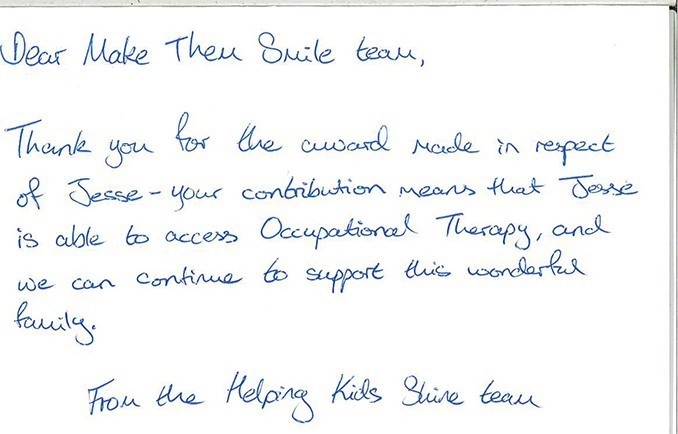 Dear Make Them Smile team,
Thank you for the award made in respect
of Jesse - your contribution means that Jesse
is able to access Occupational Therapy, and
we can continue to support this wonderful
family.
From the Helping Kids Shine team